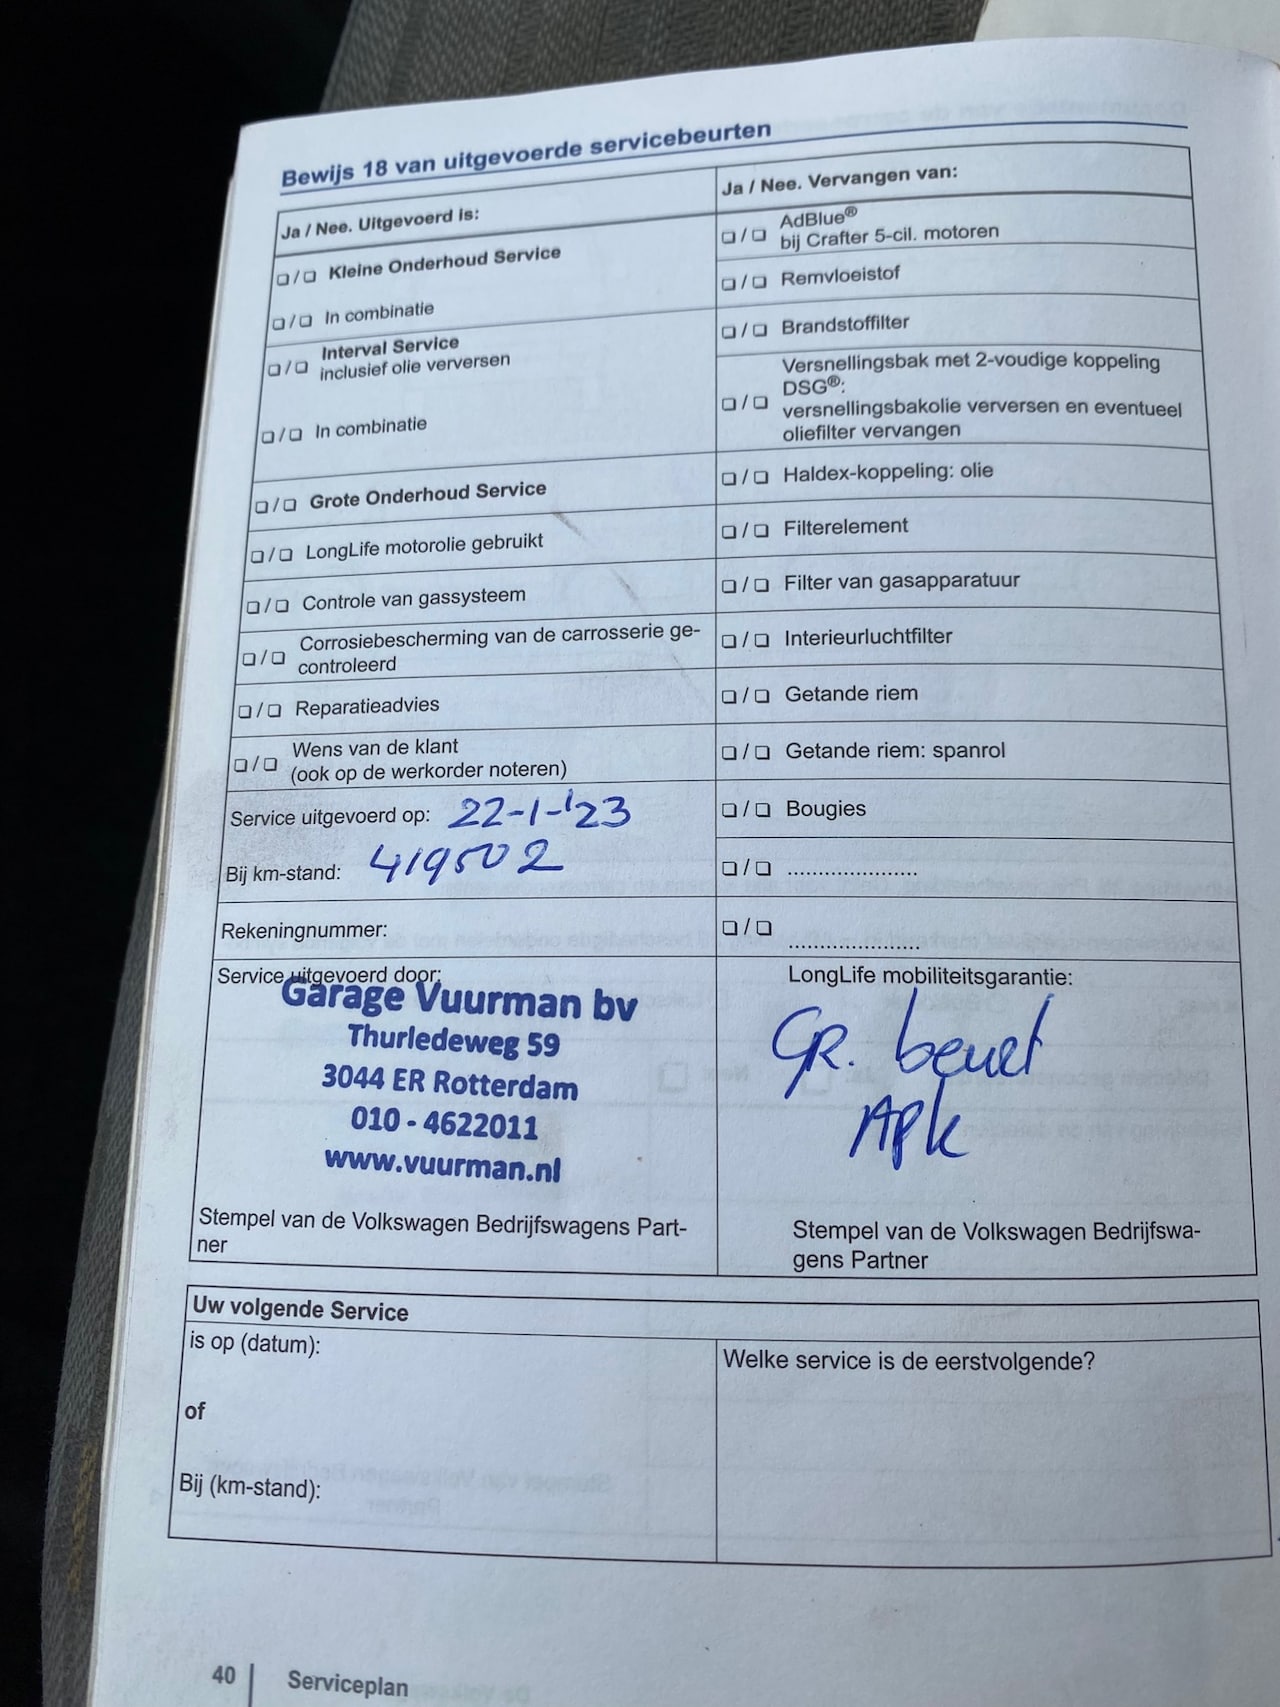 Bewijs 18 van uitgevoerde servicebeurten
Ja / Nee. Uitgevoerd is:
❏ / ❏ Kleine Onderhoud Service
❏ / ❏ In combinatie
❏ / ❏ Interval Service
inclusief olie verversen
❏ / ❏ In combinatie
❏ / ❏ Grote Onderhoud Service
❏ / ❏ LongLife motorolie gebruikt
❏ / ❏ Controle van gassysteem
❏ / ❏ Corrosiebescherming van de carrosserie ge-
controleerd
❏ / ❏ Reparatieadvies
❏ / ❏ Wens van de klant
(ook op de werkorder noteren)
Service uitgevoerd op: 22-1-'23
Bij km-stand: 419502
Rekeningnummer:
Ja / Nee. Vervangen van:
❏ / ❏ AdBlue®
bij Crafter 5-cil. motoren
❏ / ❏ Remvloeistof
❏ / ❏ Brandstoffilter
❏ / ❏ Versnellingsbak met 2-voudige koppeling
DSG®:
versnellingsbakolie verversen en eventueel
oliefilter vervangen
❏ / ❏ Haldex-koppeling: olie
❏ / ❏ Filterelement
❏ / ❏ Filter van gasapparatuur
❏ / ❏ Interieurluchtfilter
❏ / ❏ Getande riem
❏ / ❏ Getande riem: spanrol
❏ / ❏ Bougies
❏ / ❏ ......................
❏ / ❏ ......................
Service uitgevoerd door:
Garage Vuurman bv
Thurledeweg 59
3044 ER Rotterdam
010 - 4622011
www.vuurman.nl
Stempel van de Volkswagen Bedrijfswagens Part-
ner
LongLife mobiliteitsgarantie:
GR. beurt
APK
Stempel van de Volkswagen Bedrijfswa-
gens Partner
Uw volgende Service
is op (datum):
of
Bij (km-stand):
Welke service is de eerstvolgende?
40 Serviceplan